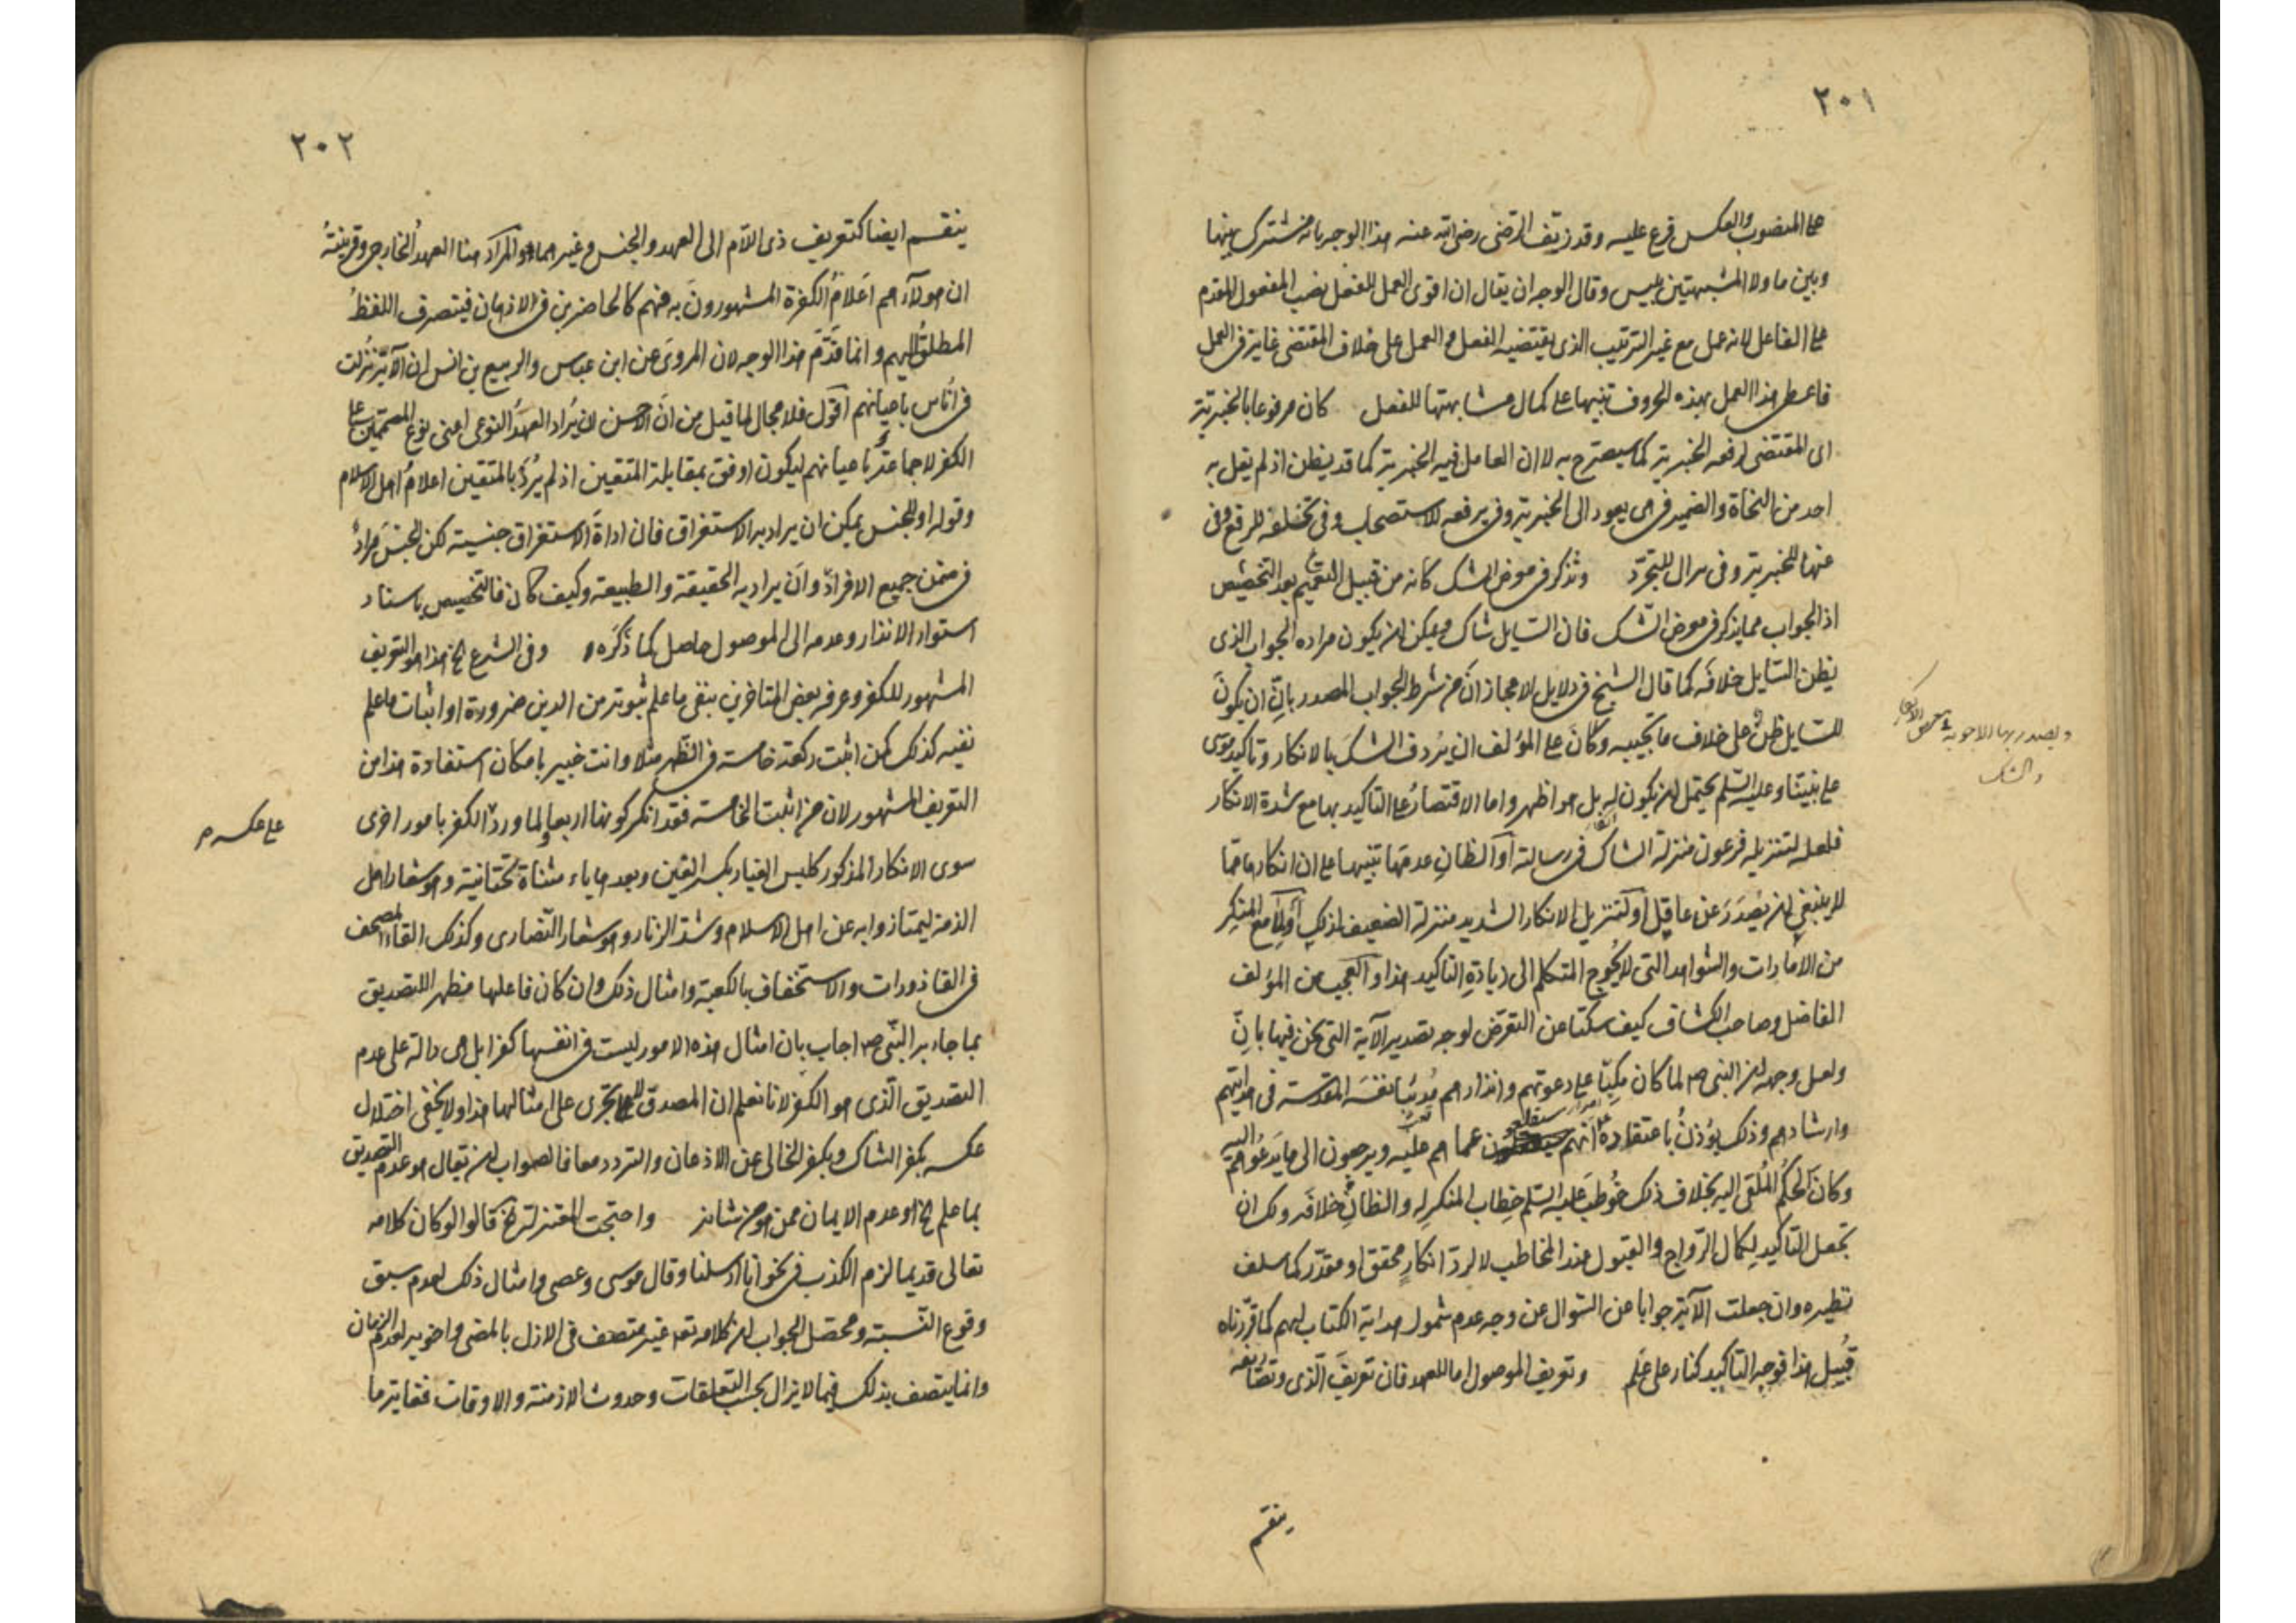 ٢٠١
على المنصوب والعكس فرع عليه وقد زيّف الرّضى رضى الله عنه هذا الوجه بانه مشترك بينها
وبين ما ولا المشبهتين بليس وقال الوجه ان يقال ان اقوى العمل للفعل نصب المفعول المقدم
على الفاعل لانه عمل مع غير الترتيب الذى يقتضيه الفعل والعمل على خلاف المقتضى غاية فى العمل
فاعطى هذا العمل بهذه الحروف تنبيها على كمال مشابهتها للفعل كان مرفوعا بالخبرية
اى المقتضى لرفعه الخبرية كما سيصرح به لا ان العامل فيه الخبرية كما قد يظن اذ لم يقل به
احد من النحاة والضمير فى هى يعود الى الخبرية وفى يرفعه للاستصحاب وفى تخلفه للرفع وفى
عنها للخبرية وفى بزوال للتجرّد وتذكر فى معرض الشك كانه من قبيل التعميم بعد التخصيص
اذ الجواب مما يذكر فى معرض الشك فان السّايل شاك ويمكن ان يكون مراده الجواب الذى
يظن السّايل خلافه كما قال الشيخ فى دلايل الاعجاز انّ من شرط الجواب المصدر بانّ ان يكون
للسايل ظنّ على خلاف ما تجيبه وكان على المؤلف ان يردف الشك بالانكار وتاكيد موسى
على نبيّنا وعليه السّلم يحتمل ان يكون له بل هو اظهر واما الاقتصار على التاكيد بها مع شدة الانكار
فلعله لتنزيله فرعون منزلة الشاك فى رسالته أو الظان عدمها تنبيها على ان انكارها مما
لا ينبغى ان يصدر عن عاقل أو لتنزيل الانكار الشديد منزلة الضعيف لذلك أو لما مع المنكر
من الامارات والشواهد التى لا تُحوج المتكلم الى زيادة التاكيد هذا والعجب من المؤلف
الفاضل وصاحب الكشاف كيف سكتا عن التعرّض لوجه تصدير الآية التى نحن فيها بانّ
ولعل وجهه ان النبى ص لما كان مكبّا على دعوتهم وانذارهم مُدئبا نفسه المقدّسة فى هدايتهم
وارشادهم وذلك يؤذن باعتقاده انهم سيقلعون عما هم عليه ويرجعون الى ما يدعوهم اليه
وكان الحكم المُلقى اليه بخلاف ذلك خُوطب عليه السّلم خطاب المنكر له والظان خلافه ولك ان
تجعل التاكيد لكمال الرّواج والقبول عند المخاطب لا لردّ انكار محقق او مقدّر كما سلف
نظيره وان جعلت الآية جوابا عن السّوال عن وجه عدم شمول هداية الكتاب لهم كما قرّرناه
قُبيل هذا فوجه التاكيد كنار على علم وتعريف الموصول اما للعهد فان تعريف الّذى وتصاريفه
ينقسم
ويصدر بها الاجوبة
والشك
٢٠٢
ينقسم ايضا كتعريف ذى اللاّم الى العهد والجنس وغيرهما والمراد هنا العهد الخارجى وقرينته
ان هولآء هم اعلام الكفرة المشهورون به فهم كالحاضرين فى الاذهان فيتصرف اللفظ
المطلق اليهم وانما قدّم هذا الوجه لان المروى عن ابن عباس والربيع بن انس ان الآية نزلت
فى أناس باعيانهم أقول فلا مجال لما قيل من ان الاحسن ان يُراد العهد النوعى اعنى نوع المصممين على
الكفر لا جماعة باعيانهم ليكون اوفق بمقابلة المتقين اذ لم يُرد بالمتقين اعلام اهل الاسلام
وقوله او للجنس يمكن ان يراد به الاستغراق فان اداة الاستغراق جنسية لكن الجنس مرادٌ
فى ضمن جميع الافراد وان يراد به الحقيقة والطبيعة وكيف كان فالتخصيص باسناد
استواء الانذار وعدمه الى الموصول حاصل كما ذكره وفى الشرع الخ هذا هو التعريف
المشهور للكفر وعرفه بعض المتاخرين بنفى ما علم ثبوته من الدين ضرورة او اثبات ما علم
نفيه كذلك كمن اثبت ركعة خامسة فى الظهر مثلا وانت خبير بامكان استفادة هذا من
التعريف المشهور لان من اثبت الخامسة فقد انكر كونها اربعا ولما ورد الكفر بامور اخرى
على عكسه م
سوى الانكار المذكور كلبس الغيار بكسر الغين وبعدها ياء مثناة تحتانية وهو شعار اهل
الذمة ليمتازوا به عن اهل الاسلام وشدّ الزنار وهو شعار النّصارى وكذلك القاء المصحف
فى القاذورات والاستخفاف بالكعبة وامثال ذلك وان كان فاعلها مظهرا للتصديق
بما جاء به النّبى ص اجاب بان امثال هذه الامور ليست فى انفسها كفرا بل هى دالة على عدم
التصديق الّذى هو الكفر لانا نعلم ان المصدق لا يتجرى على امثالها هذا ولا يخفى اختلال
عكسه بكفر الشاك وبكفر الخالى عن الاذعان والتردد معا فالصواب ان يقال هو عدم التصديق
بما علم الخ او عدم الايمان ممن هو من شانه واحتجت المعتزلة الخ قالوا لو كان كلامه
تعالى قديما لزم الكذب فى نحو انا ارسلنا وقال موسى وعصى وامثال ذلك لعدم سبق
وقوع النّسبة ومحصّل الجواب ان كلامه تعه غير متصف فى الازل بالمضى واخويه لعدم الزمان
وانما يتصف بذلك فيما لا يزال بحسب التعلقات وحدوث الازمنة والاوقات فغاية ما